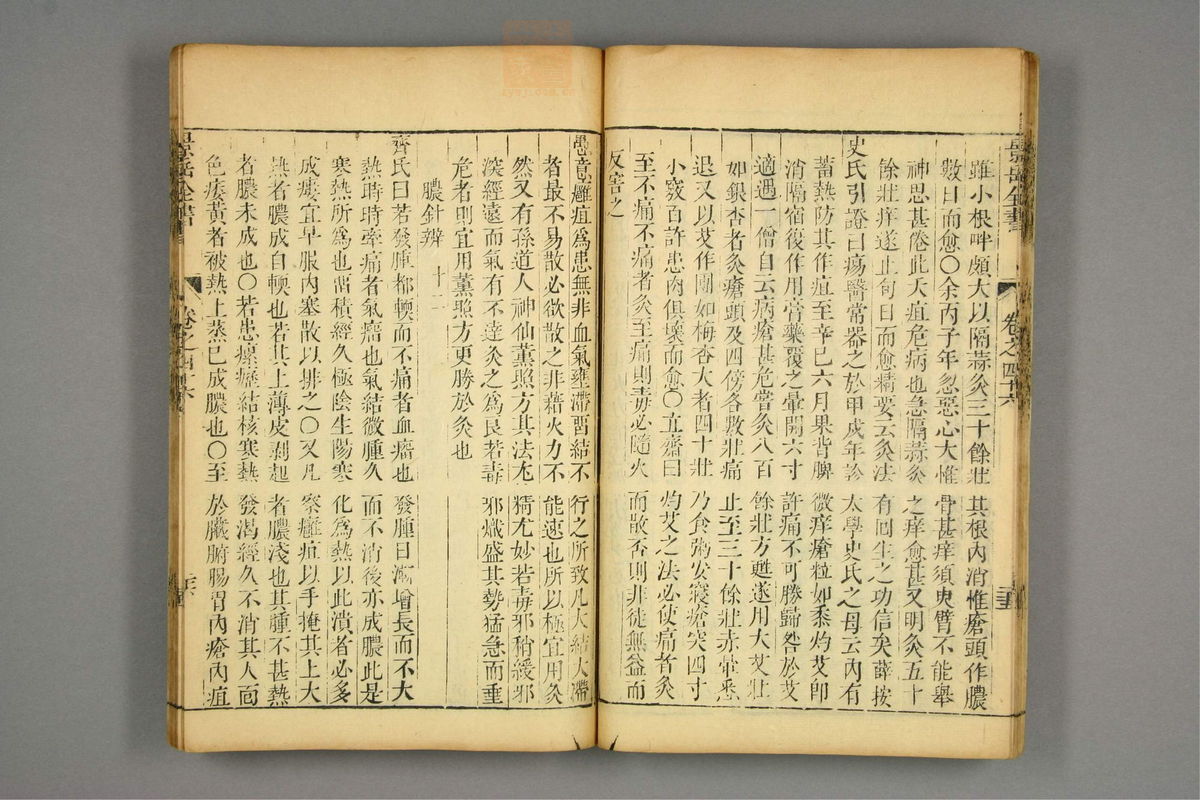 景岳全書 卷之四十六
雖小根畔頗大以隔蒜灸三十餘壯其根內消惟瘡頭作膿
數日而愈〇余丙子年忽惡心大惟骨甚痒須臾臂不能舉
神思甚倦此夭疽危病也急隔蒜灸之痒愈甚又明灸五十
餘壯痒遂止旬日而愈精要云灸法有回生之功信矣薛按
史氏引證曰瘍醫常器之於甲戌年診太學史氏之母云內有
蓄熱防其作疽至辛巳六月果背脾微痒瘡粒如黍灼艾即
消隔宿復作用膏藥覆之暈開六寸許痛不可勝歸咎於艾
適遇一僧自云病瘡甚危嘗灸八百餘壯方甦遂用大艾壯
如銀杏者灸瘡頭及四傍各數壯痛止至三十餘壯赤暈悉
退又以艾作團如梅杏大者四十壯乃食粥安寢瘡突四寸
小竅百許患肉俱壞而愈〇立齋曰灼艾之法必使痛者灸
至不痛不痛者灸至痛則毒必隨火而散否則非徒無益而
反害之
愚意癰疽爲患無非血氣壅滯畱結不行之所致凡大結大滯
者最不易散必欲散之非藉火力不能速也所以極宜用灸
然又有孫道人神仙薰照方其法尤精尤妙若毒邪稍緩邪
深經遠而氣有不達灸之爲良若毒邪熾盛其勢猛急而垂
危者則宜用薰照方更勝於灸也
膿針辨 十二
齊氏曰若發腫都輭而不痛者血瘤也發腫日漸增長而不大
熱時時牽痛者氣瘤也氣結微腫久而不消後亦成膿此是
寒熱所爲也畱積經久極陰生陽寒化爲熱以此潰者必多
成瘻宜早服內塞散以排之〇又凡察癰疽以手掩其上大
熱者膿成自輭也若其上薄皮剥起者膿淺也其腫不甚熱
者膿未成也〇若患瘰癧結核寒熱發渴經久不消其人面
色痿黃者被熱上蒸已成膿也〇至於臟腑腸胃內瘡內疽
景岳全書 卷之四十六